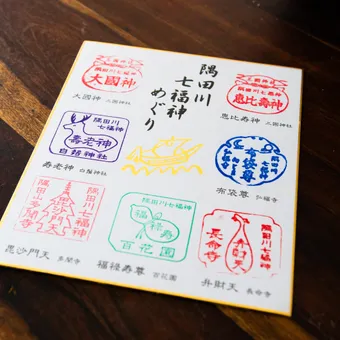 隅田川
七福神
めぐり
隅田川七福神
大國神
大國神 三囲神社
隅田川七福神
恵比壽神
恵比寿神 三囲神社
隅田川七福神
壽老神
白鬚神社
寿老神 白鬚神社
布袋尊
布袋尊 弘福寺
隅田川七福神
毘沙門天
隅田山多聞寺
毘沙門天 多聞寺
隅田川七福神
福禄寿
百花園
福禄寿尊 百花園
隅田川七福神
弁財天
長命寺
弁財天 長命寺